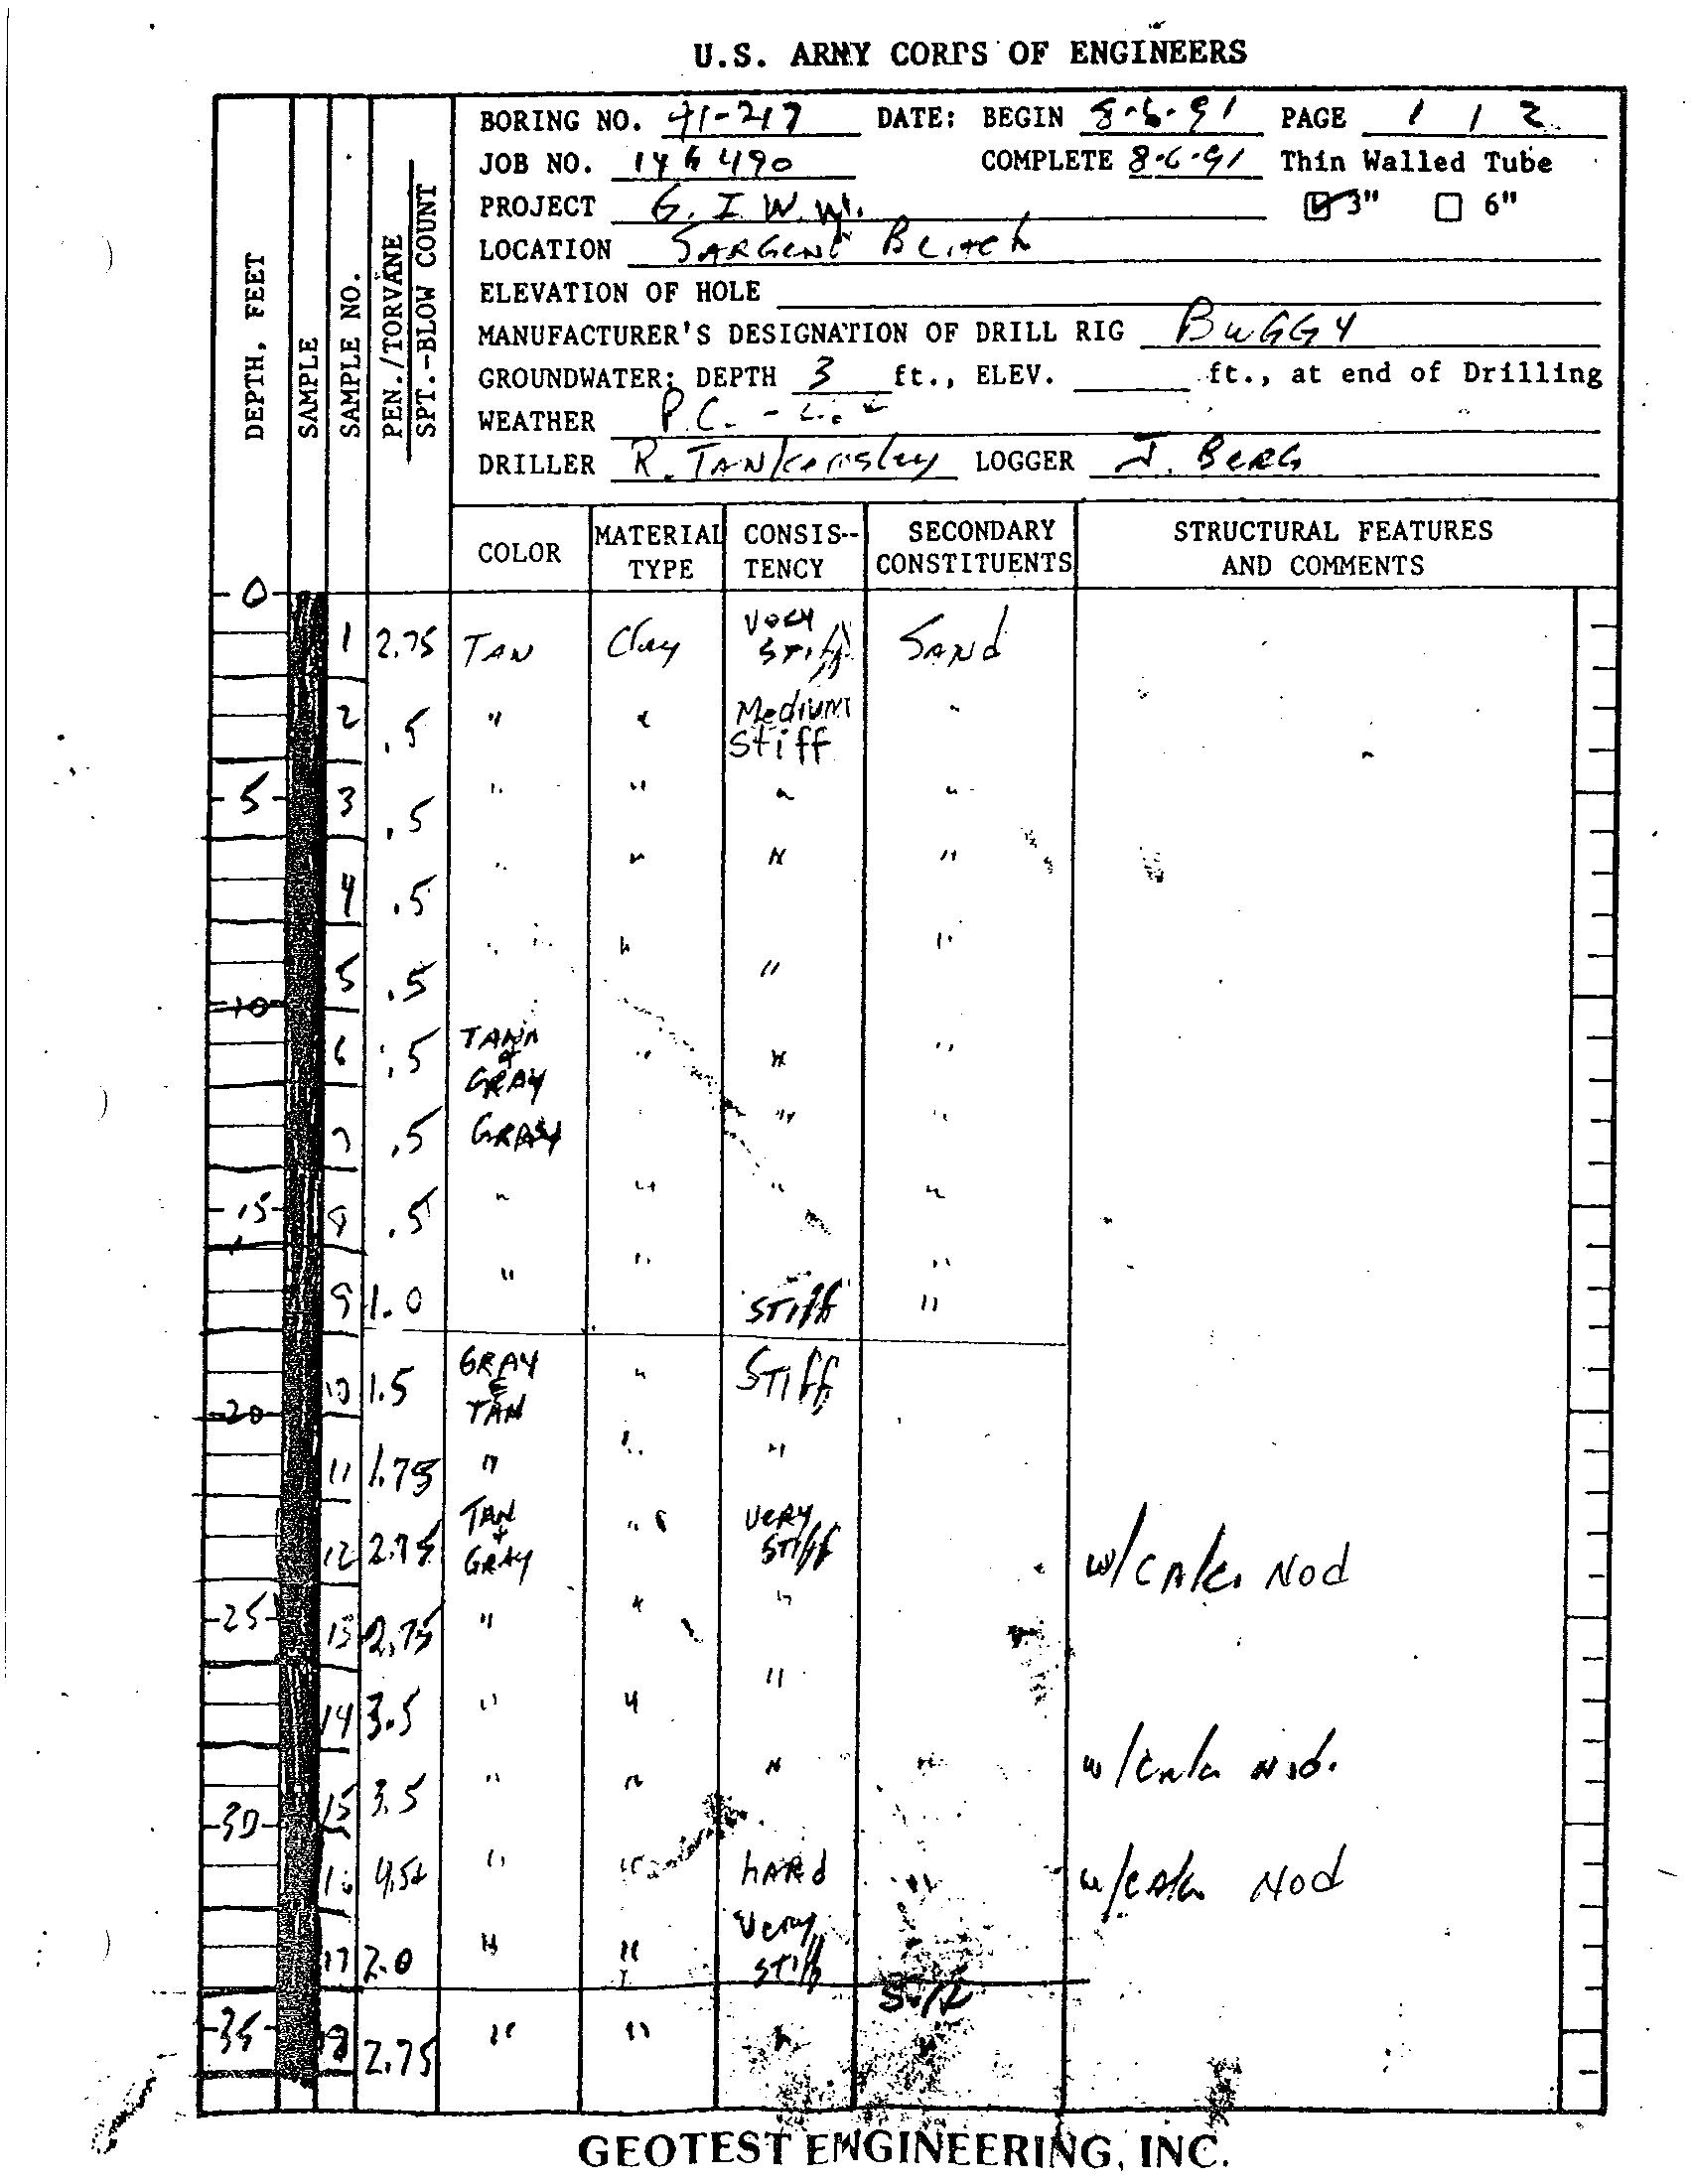 U.S. ARMY CORPS OF ENGINEERS
BORING NO. 91-217 DATE: BEGIN 8-6-91 PAGE 1 / 2
JOB NO. 146490 COMPLETE 8-6-91 Thin Walled Tube
PROJECT G.I.W.W. 3" 6"
LOCATION SARGENT BEACH
ELEVATION OF HOLE
MANUFACTURER'S DESIGNATION OF DRILL RIG BUGGY
GROUNDWATER: DEPTH 3 ft., ELEV. ft., at end of Drilling
WEATHER P.C. -
DRILLER R. TANKersley LOGGER J. BERG
DEPTH, FEET
SAMPLE
SAMPLE NO.
PEN./TORVANE
SPT.-BLOW COUNT
COLOR MATERIAL TYPE CONSIS-- TENCY SECONDARY CONSTITUENTS STRUCTURAL FEATURES AND COMMENTS
0
1 2.75 TAN Clay Very Stiff SAND
2 .5 " " Medium Stiff "
5 3 .5 " " " "
4 .5 " " " "
5 .5 " " " "
10
6 .5 TAN & GRAY " " "
7 .5 GRAY " "
15 8 .5 " " " "
9 1.0 " " STIFF " "
10 1.5 GRAY & TAN " STIFF
20
11 1.75 " " "
12 2.75 TAN + GRAY " VERY STIFF w/CALC. NOD
25 13 2.75 " " "
14 3.5 " " "
15 3.5 " " " " w/Calc NOD.
30
16 4.5+ " " HARD " w/CALC NOD
17 2.0 " " Very stiff
35 18 2.75 " " " "
GEOTEST ENGINEERING, INC.